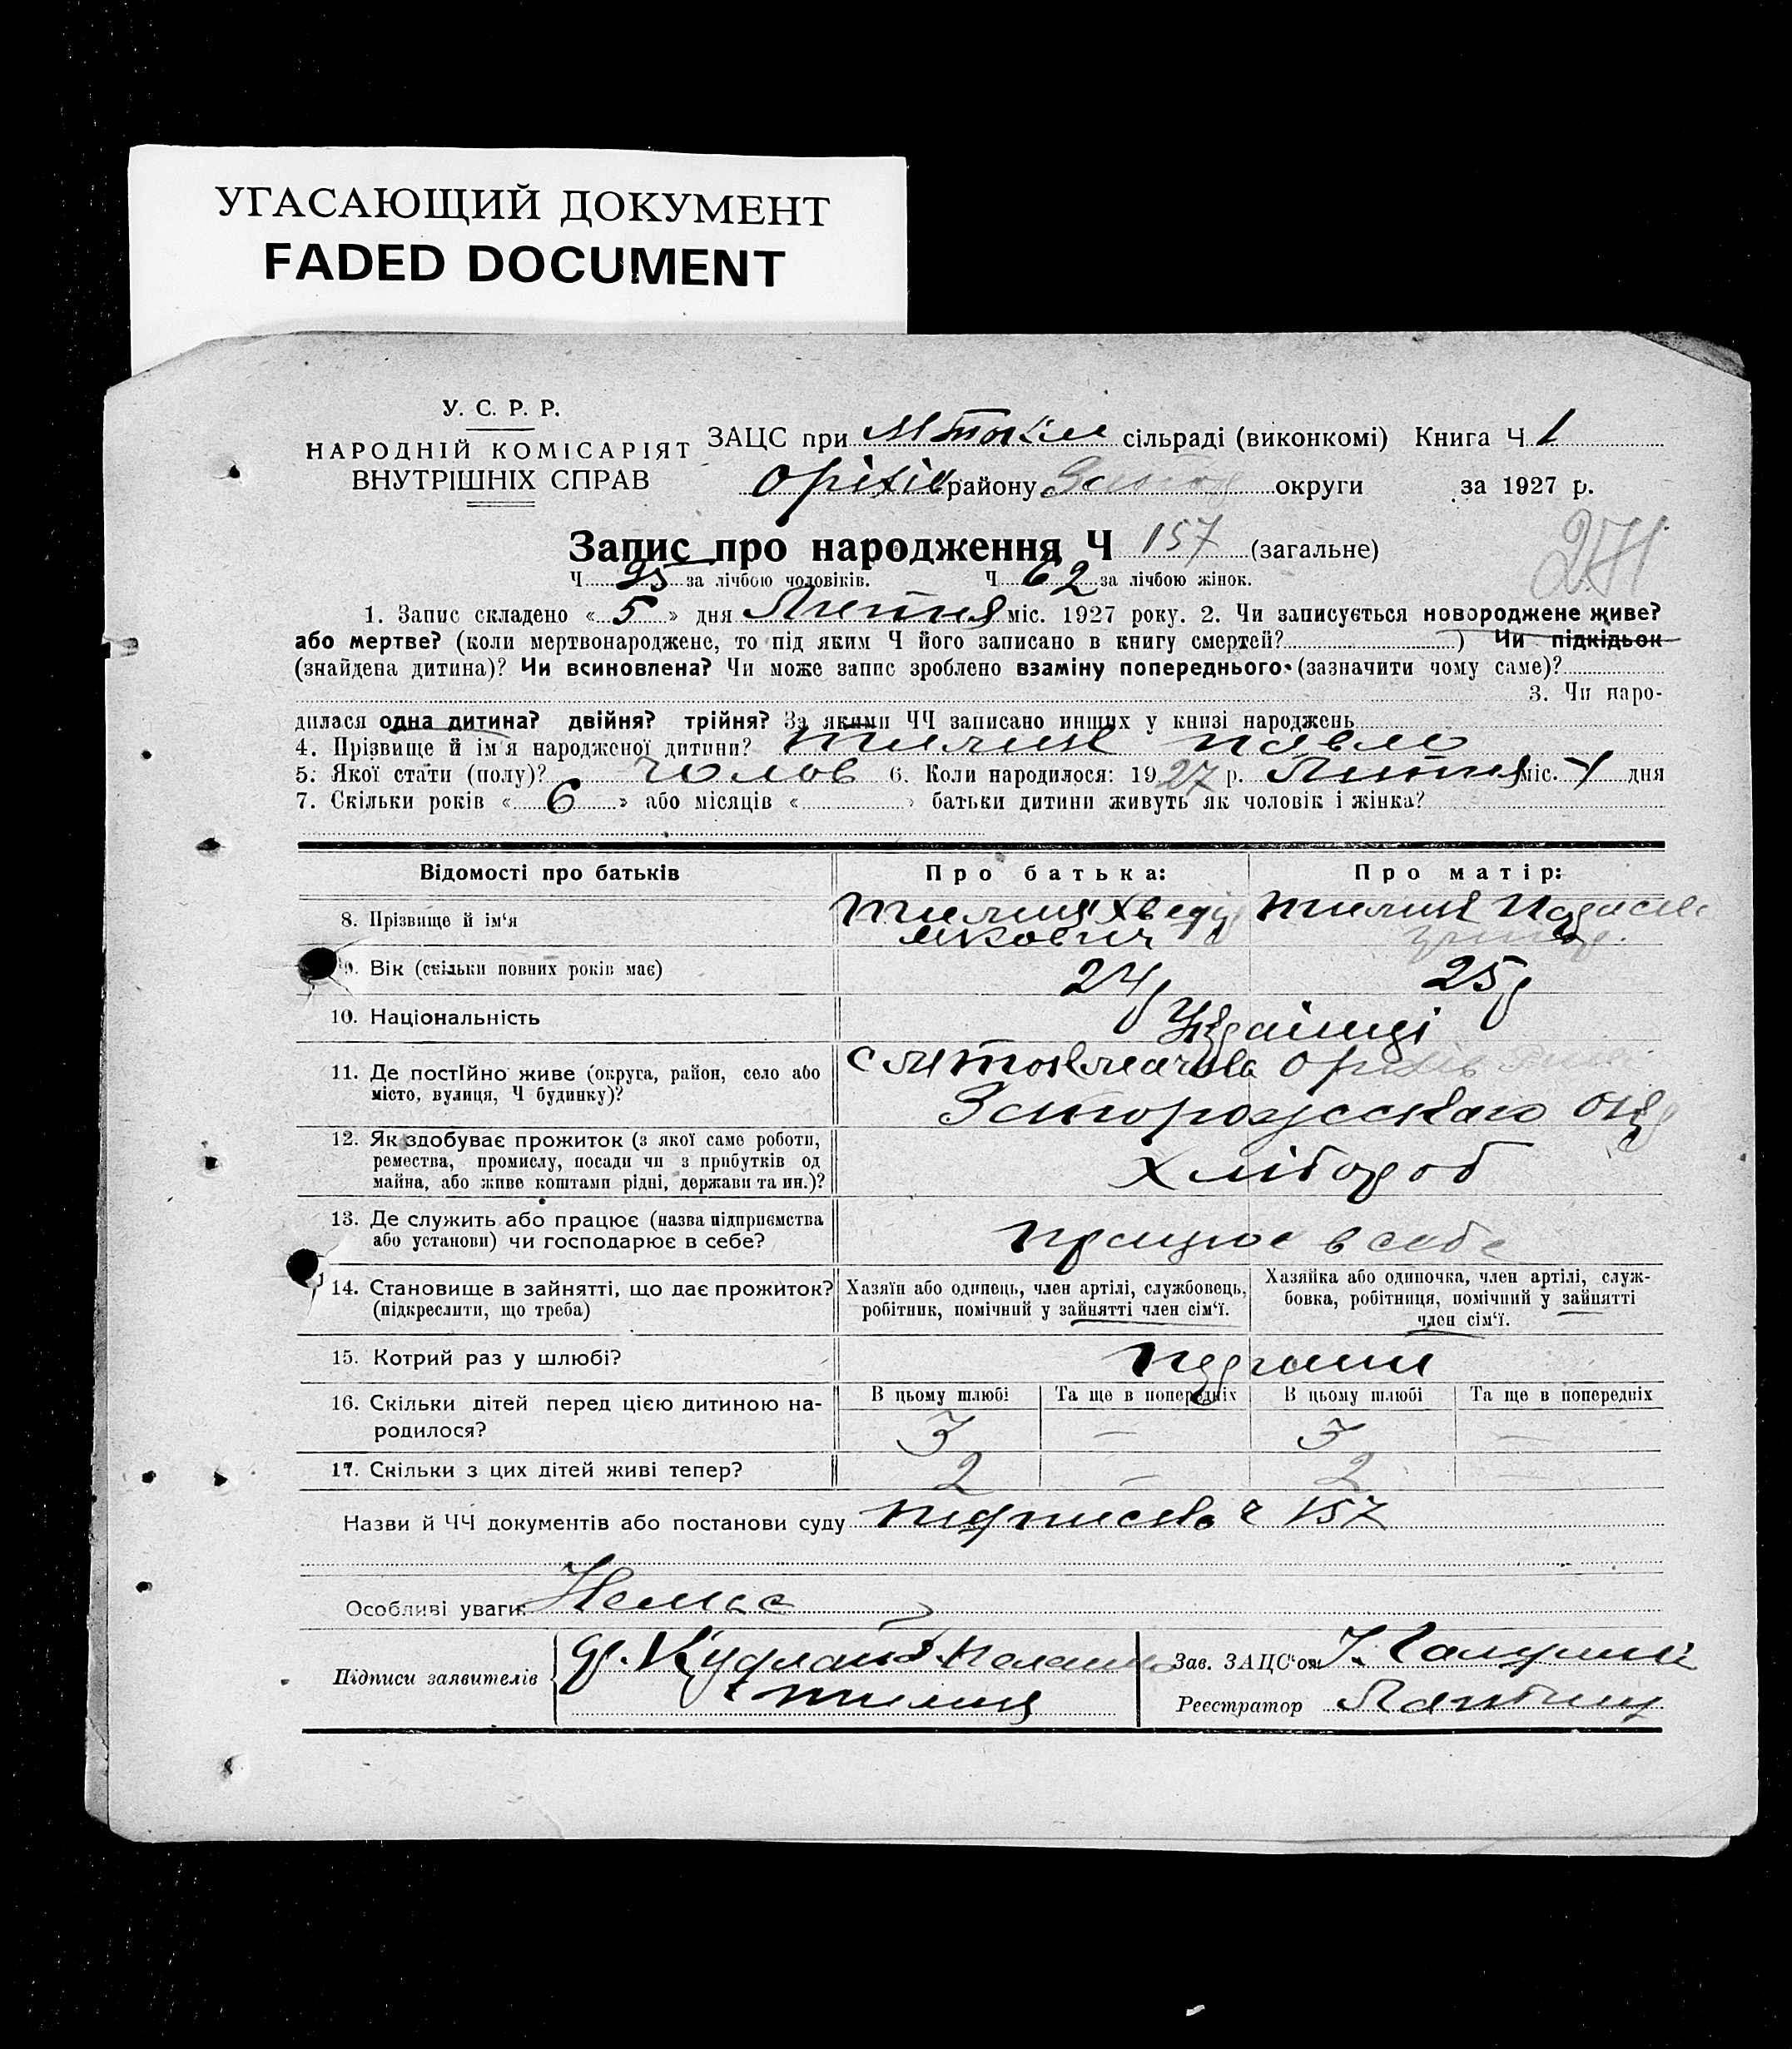 УГАСАЮЩИЙ ДОКУМЕНТ
FADED DOCUMENT
У. С. Р. Р.
НАРОДНІЙ КОМІСАРІЯТ
ВНУТРІШНІХ СПРАВ
ЗАЦС при М Токм сільраді (виконкомі) Книга Ч 1
Оріхів району Запор округи за 1927 р.
Запис про народження Ч 157 (загальне)
271
Ч 95 за лічбою чоловіків. Ч 62 за лічбою жінок.
1. Запис складено « 5 » дня Липня міс. 1927 року. 2. Чи записується новороджене живе?
або мертве? (коли мертвонароджене, то під яким Ч його записано в книгу смертей? ) Чи підкідьок
(знайдена дитина)? Чи всиновлена? Чи може запис зроблено взаміну попереднього (зазначити чому саме)?
3. Чи наро-
дилася одна дитина? двійня? трійня? За якими ЧЧ записано инших у книзі народжень
4. Прізвище й ім'я народженої дитини? Павло
5. Якої статі (полу)? Чолов 6. Коли народилося: 1927 р. Липня міс. 1 дня
7. Скільки років « 6 » або місяців « » батьки дитини живуть як чоловік і жінка?
Відомості про батьків Про батька: Про матір:
8. Прізвище й ім'я Хведір
9. Вік (скільки повних років має) 24 25
10. Національність Українці
11. Де постійно живе (округа, район, село або с Оріхів
місто, вулиця, Ч будинку)? Запорожського окр
12. Як здобуває прожиток (з якої саме роботи,
ремества, промислу, посади чи з прибутків од Хлібороб
майна, або живе коштами рідні, держави та ин.)?
13. Де служить або працює (назва підприємства
або установи) чи господарює в себе? працює в себе
14. Становище в зайнятті, що дає прожиток? Хазяїн або одинець, член артілі, службовець, Хазяйка або одиночка, член артілі, служ-
(підкреслити, що треба) робітник, помічний у зайнятті член сім'ї. бовка, робітниця, помічний у зайнятті
член сім'ї.
15. Котрий раз у шлюбі? перший
16. Скільки дітей перед цією дитиною на- В цьому шлюбі Та ще в попередніх В цьому шлюбі Та ще в попередніх
родилося? 3 — 3 —
17. Скільки з цих дітей живі тепер? 2 — 2 —
Назви й ЧЧ документів або постанови суду підписка ч 157
Особливі уваги: Немає
Підписи заявителів Зав. ЗАЦС'ом
Реєстратор